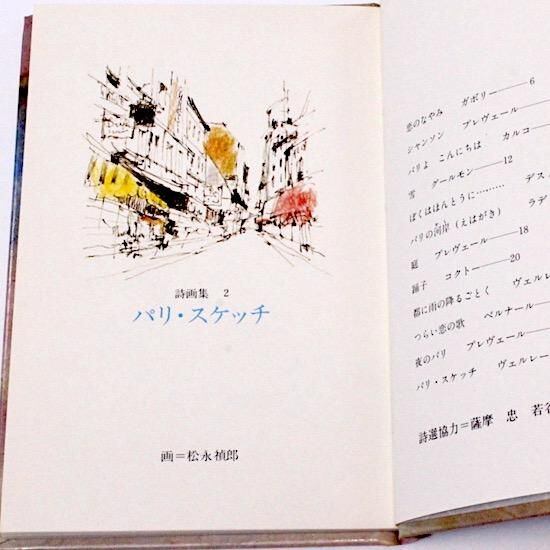 詩画集 2
パリ・スケッチ
画＝松永禎郎
恋のなやみ ガボリー——6
シャンソン プレヴェール
パリよ こんにちは カルコ
雪 グールモン——12
ぼくはほんとうに……… デス
パリの河岸（えはがき） ラデ
庭 プレヴェール——18
踊子 コクトー——20
都に雨の降るごとく ヴェルレ
つらい恋の歌 ベルナール
夜のパリ プレヴェール
パリ・スケッチ ヴェルレー
詩選協力＝薩摩 忠 若谷